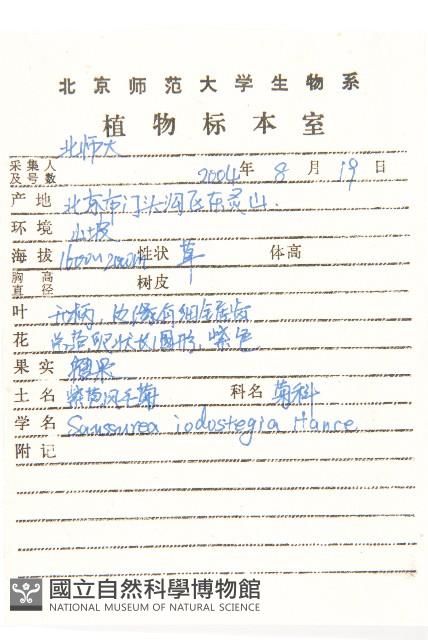 北京师范大学生物系
植物标本室
采集人及号数 北师大 2004年8月19日
产地 北京市门头沟区东灵山.
环境 山坡
海拔 1600~2000m 性状 草 体高
胸高直径 树皮
叶 无柄,边缘有细锯齿
花 总苞卵状长圆形,紫色
果实 瘦果
土名 紫苞风毛菊 科名 菊科
学名 Saussurea iodostegia Hance
附记
國立自然科學博物館
NATIONAL MUSEUM OF NATURAL SCIENCE